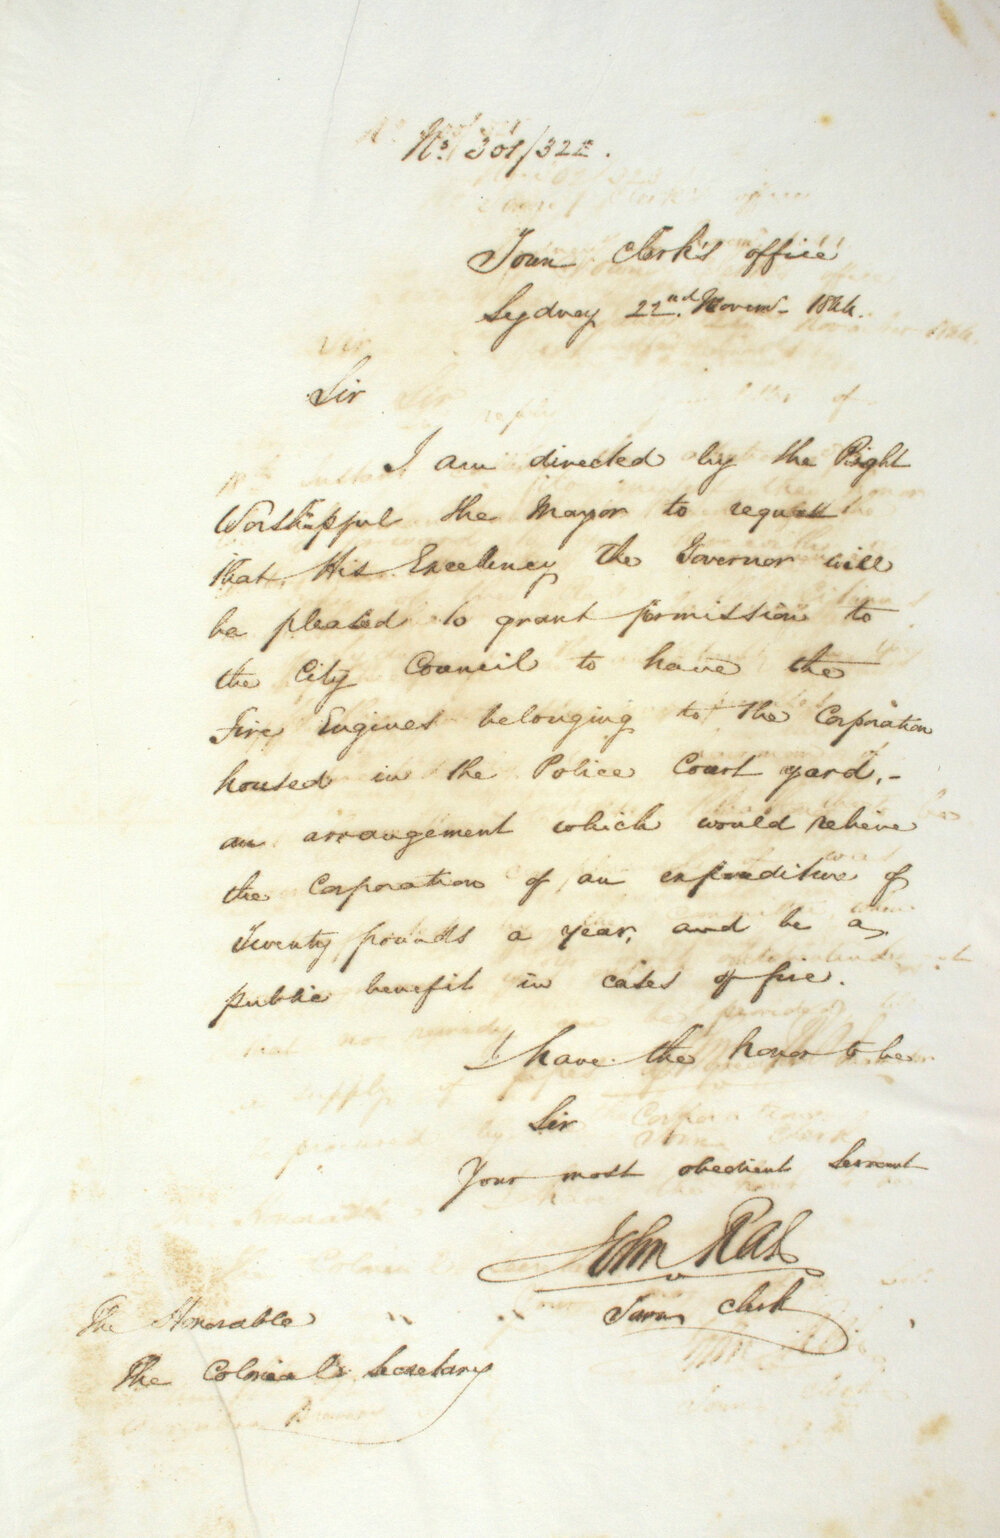 No. 301/322.
Town Clerk's office
Sydney 22nd. Novem- 1844.
Sir
I am directed by the Right
Worshipful the Mayor to request
that His Excellency the Governor will
be pleased to grant permission to
the City Council to have the
Fire Engines belonging to the Corporation
housed in the Police Court yard,-
an arrangement which would relieve
the Corporation of an expenditure of
Twenty pounds a year, and be a
public benefit in cases of fire.
I have the honor to be
Sir
Your most obedient Servant
John Rae
Town Clerk
The Honorable
The Colonial Secretary